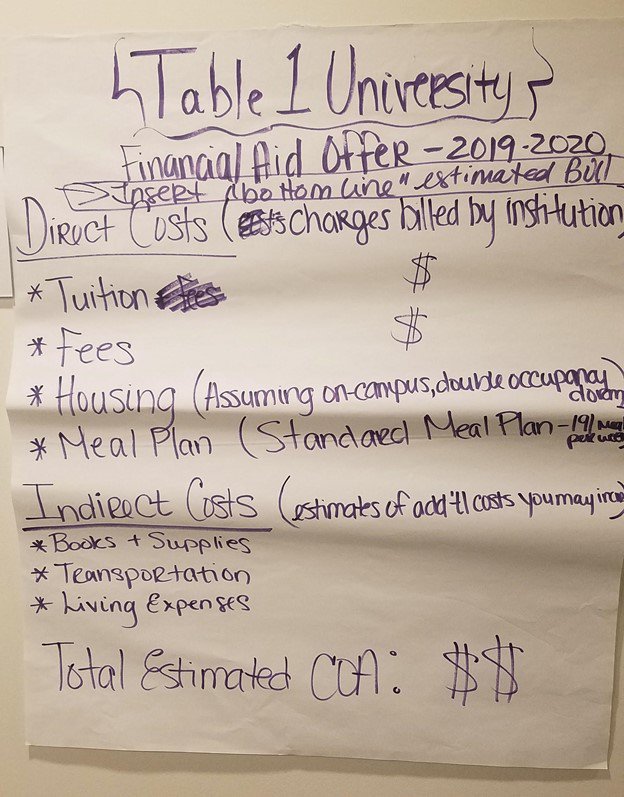 Table 1 University
Financial Aid Offer - 2019-2020
Insert "bottom line" estimated Bill
Direct Costs (charges billed by institution)
* Tuition $
* Fees $
* Housing (Assuming on-campus, double occupancy dorm)
* Meal Plan (Standard Meal Plan - 19/ meal per week
Indirect Costs (estimates of add'tl costs you may incur)
* Books + Supplies
* Transportation
* Living Expenses
Total Estimated COA: $$